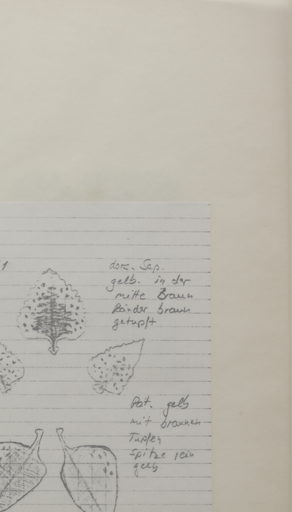 1
dors. Sep.
gelb. in der
mitte Braun
Ränder braun
getupft
Pet. gelb
mit braunen
Tupfen
Spitze rein
gelb